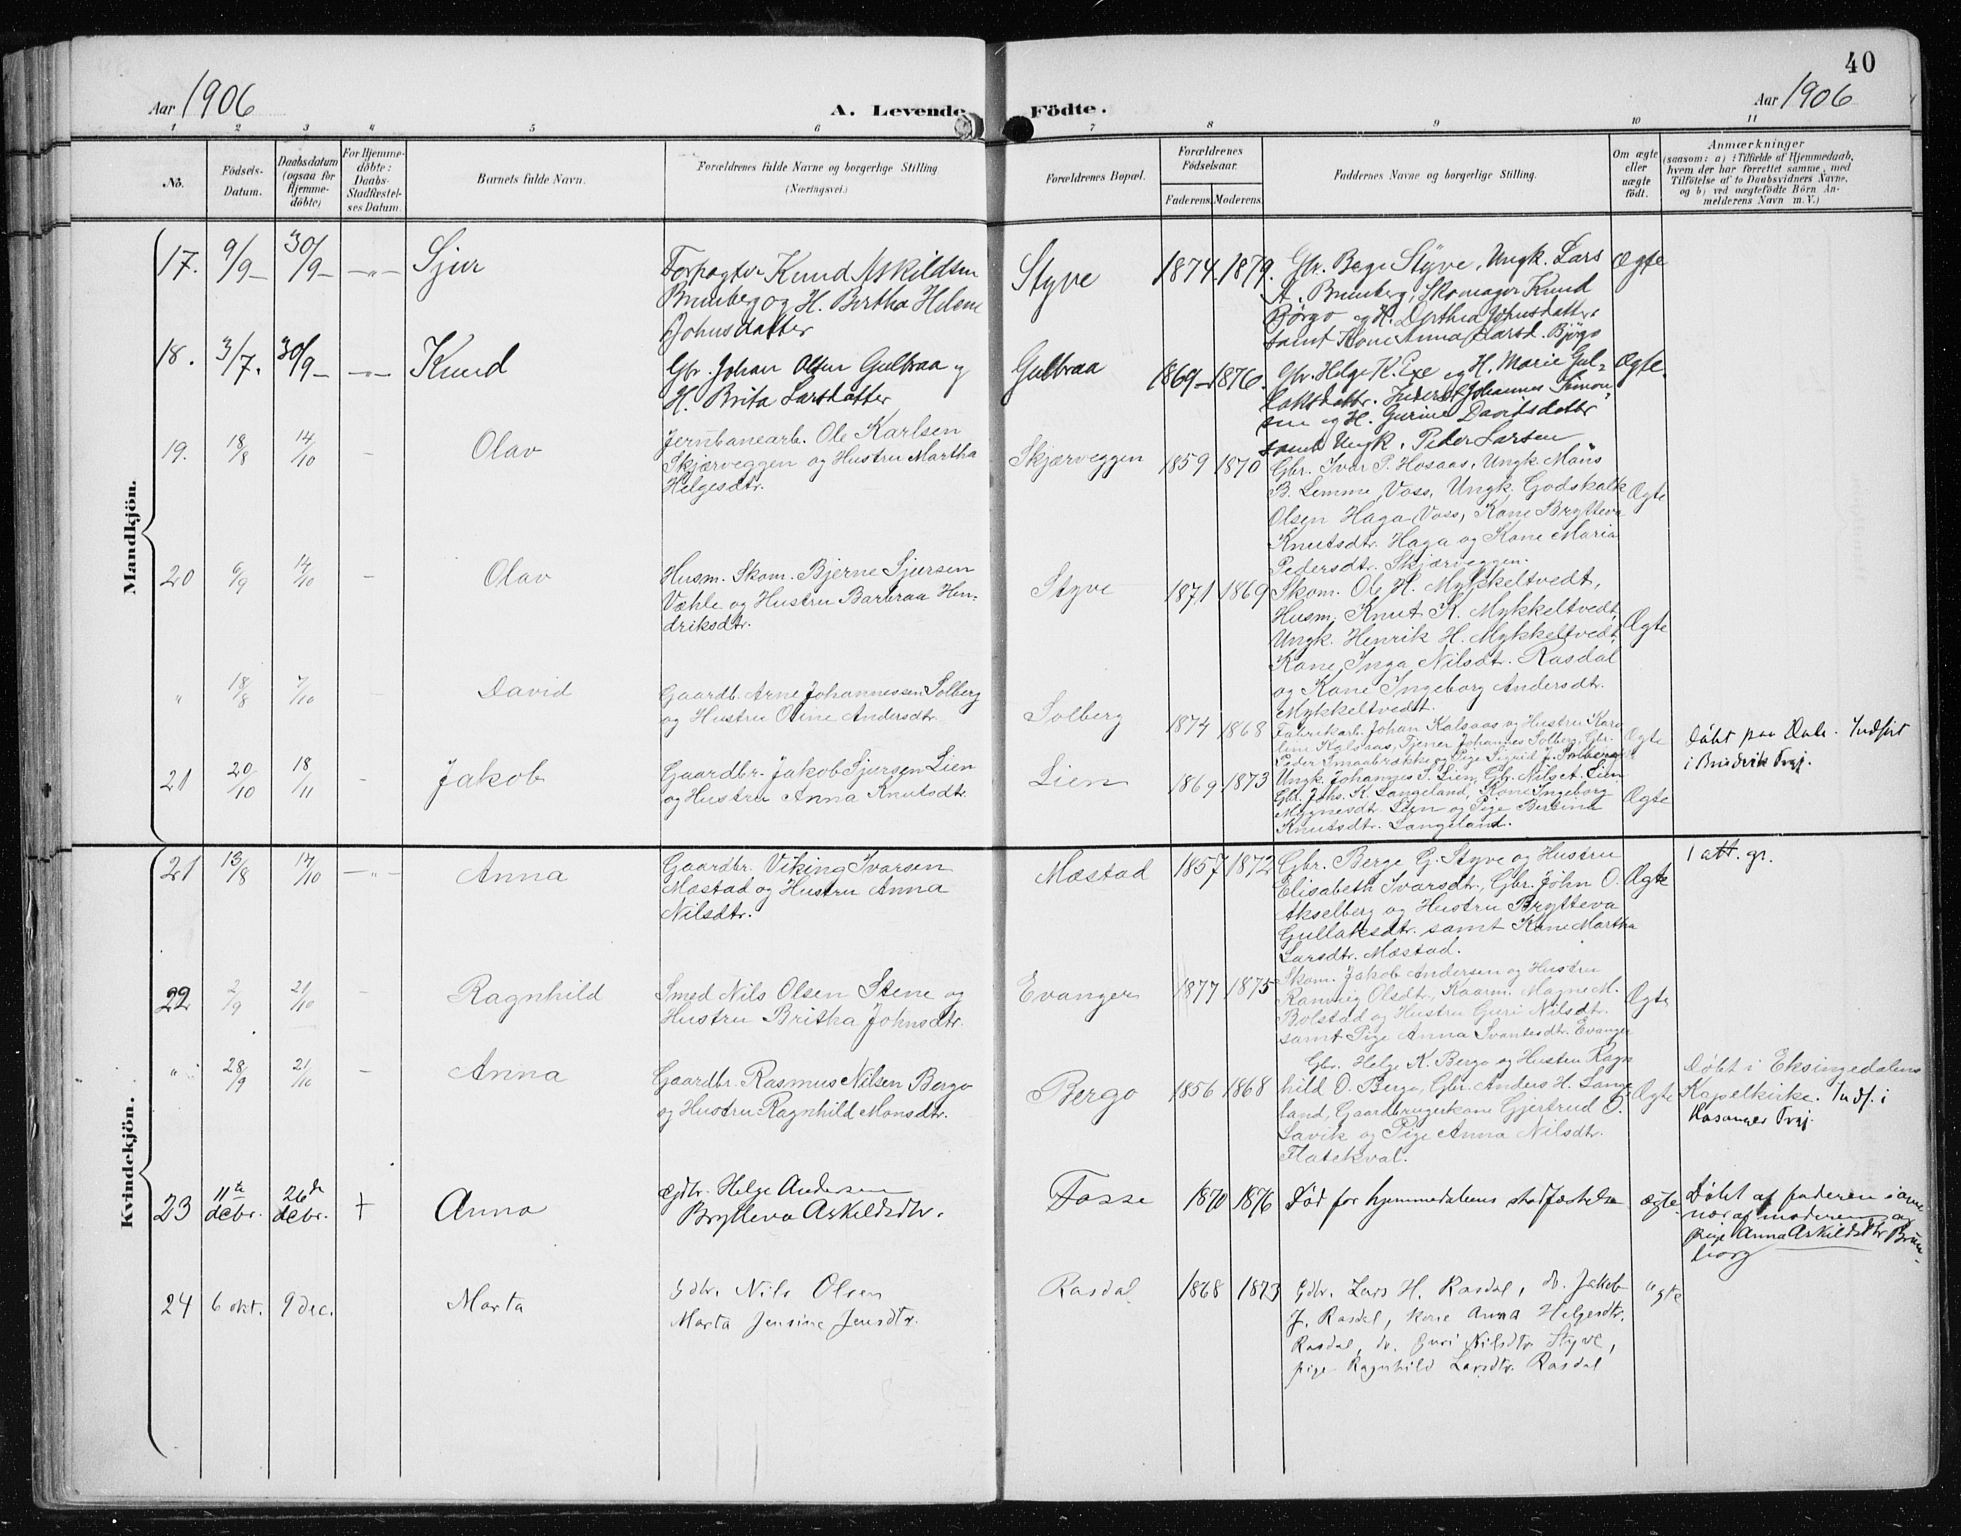 40
Aar 1906
A. Levende
Födte.
Aar 1906
1 2 3 4 5 6 7 8 9 10 11
No.
Födsels-
Datum.
Daabsdatum
(ogsaa for
Hjemme-
döbte)
For Hjemme-
döbte:
Daabs-
Stadfæstel-
ses Datum.
Barnets fulde Navn.
Forældrenes fulde Navne og borgerlige Stilling
(Næringsvei.)
Forældrenes Bopæl.
Forældrenes
Födselsaar.
Faderens. Moderens.
Faddernes Navne og borgerlige Stilling.
Om ægte
eller
uægte
födt.
Anmærkninger
(saasom: a) i Tilfælde af Hjemmedaab,
hvem der har forrettet samme, med
Tilföielse af to Daabsvidners Navne,
og b) ved uægtefödte Börn An-
melderens Navn m. V.)
Mandkjön.
17. 9/9 30/9 Sjur
Forpagter Knud Askildsen
Brunborg og H. Bertha Helene
Johnsdatter
Styve 1874. 1879.
Gbr. Berge Styve, Ungk. Lars
A. Brunborg, Skomager Knud
Björgo og H. Dorthea Johnsdatter
samt Kone Anna Larsd. Björgo
Ægte
18. 3/7. 30/9 Knud
Gbr. Johan Olsen Gulbraa og
H. Brita Larsdatter
Gulbraa 1869 1876.
Gbr. Helge K. Exe og H. Marie Gul-
laksdattr. Inderst Johannes Simon-
sen og H. Gurine Davidsdatter
samt Ungk. Peder Larsen
Ægte.
19. 18/8 14/10 Olav
Jernbanearb. Ole Karlsen
Skjærveggen og Hustru Martha
Helgesdtr.
Skjærveggen 1859 1870
Gbr. Ivar P. Hosaas, Ungk. Mons
B. Lemme, Voss, Ungk. Godskalk
Olsen Haga, Voss, Kone Brytteva
Knutsdtr. Haga og Kone Maria
Pedersdtr. Skjærveggen.
Ægte
20 6/9 14/10 Olav
Husm. Skom. Bjerne Sjursen
Væhle og Hustru Barbraa Hen-
driksdtr.
Styve 1871 1869
Skom. Ole H. Mykkeltvedt,
Husm. Knut K. Mykkeltvedt,
Ungk. Henrik H. Mykkeltvedt,
Kone Inga Nilsdtr. Rasdal
og Kone Ingeborg Andersdtr.
Mykkeltvedt.
Ægte
" 18/8 7/10 David
Gaardb. Arne Johannessen Solberg
og Hustru Oline Andersdtr.
Solberg 1874 1868
Fabrikarb. Johan Kalsaas og Hustru Karo-
line Kalsaas, Tjener Johannes Solberg, Gbr.
Peder Smaabrække og Pige Sigrid J. Solberg
Ægte
Döbt paa Dale. Indført
i Bruvik Prgj.
21 20/10 18/11 Jakob
Gaardbr. Jakob Sjursen Lien
og Hustru Anna Knutsdtr.
Lien 1869 1873
Ungk. Johannes S. Lien, Gbr. Nils A. Lien
Gbr. Johs. K. Langeland, Kone Ingeborg
Magnesdtr. Lien og Pige Bertina
Knutsdtr. Langeland.
Ægte
Kvindekjön.
21 13/8 14/10 Anna
Gaardbr. Viking Ivarsen
Mæstad og Hustru Anna
Nilsdtr.
Mæstad 1857 1872
Gbr. Berge G. Styve og Hustru
Elisabeth Ivarsdtr., Gbr. John O.
Akselberg og Hustru Brytteva
Gullaksdtr. samt Kone Martha
Larsdtr. Mæstad.
Ægte
1 att. gr.
22 2/9 21/10 Ragnhild
Smed Nils Olsen Stene og
Hustru Britha Johnsdtr.
Evanger 1877 1875
Skom. Jakob Andersen og Hustru
Ranveig Olsdtr., Kaarm. Magne M.
Bolstad og Hustru Guri Nilsdtr.
samt Pige Anna Svantesdtr. Evanger
Ægte
" 28/9 21/10 Anna
Gaardbr. Rasmus Nilsen Bergo
og Hustru Ragnhild Monsdtr.
Bergo 1856 1868
Gbr. Helge K. Bergo og Hustru Ragn
hild O. Bergo, Gbr. Anders H. Lange
land, Gaardbrugerkone Gjertrud O.
Lavik og Pige Anna Nilsdtr.
Flatekval.
Ægte
Döbt i Eksingedalens
Kapelkirke. Indf. i
Hosanger Prgj.
23 11te decbr. 26de decbr. + Anna
Gdbr. Helge Andersen
Brytteva Askildsdtr.
Fosse 1870 1876
Död før hjemmedaabens stadfæstelse
ægte
Döbt af faderen i
nær af moderen og
pige Anna Askildsdtr Brun-
borg
24 6 okt. 9 dec. Marta
Gdbr. Nils Olsen
Marta Jensine Jensdtr.
Rasdal 1868 1873
Gdbr. Lars H. Rasdal, do. Jakob
J. Rasdal, kone Anna Helgesdtr.
Rasdal, do. Guri Nilsdtr Styve,
pige Ragnhild Larsdtr. Rasdal
ægte